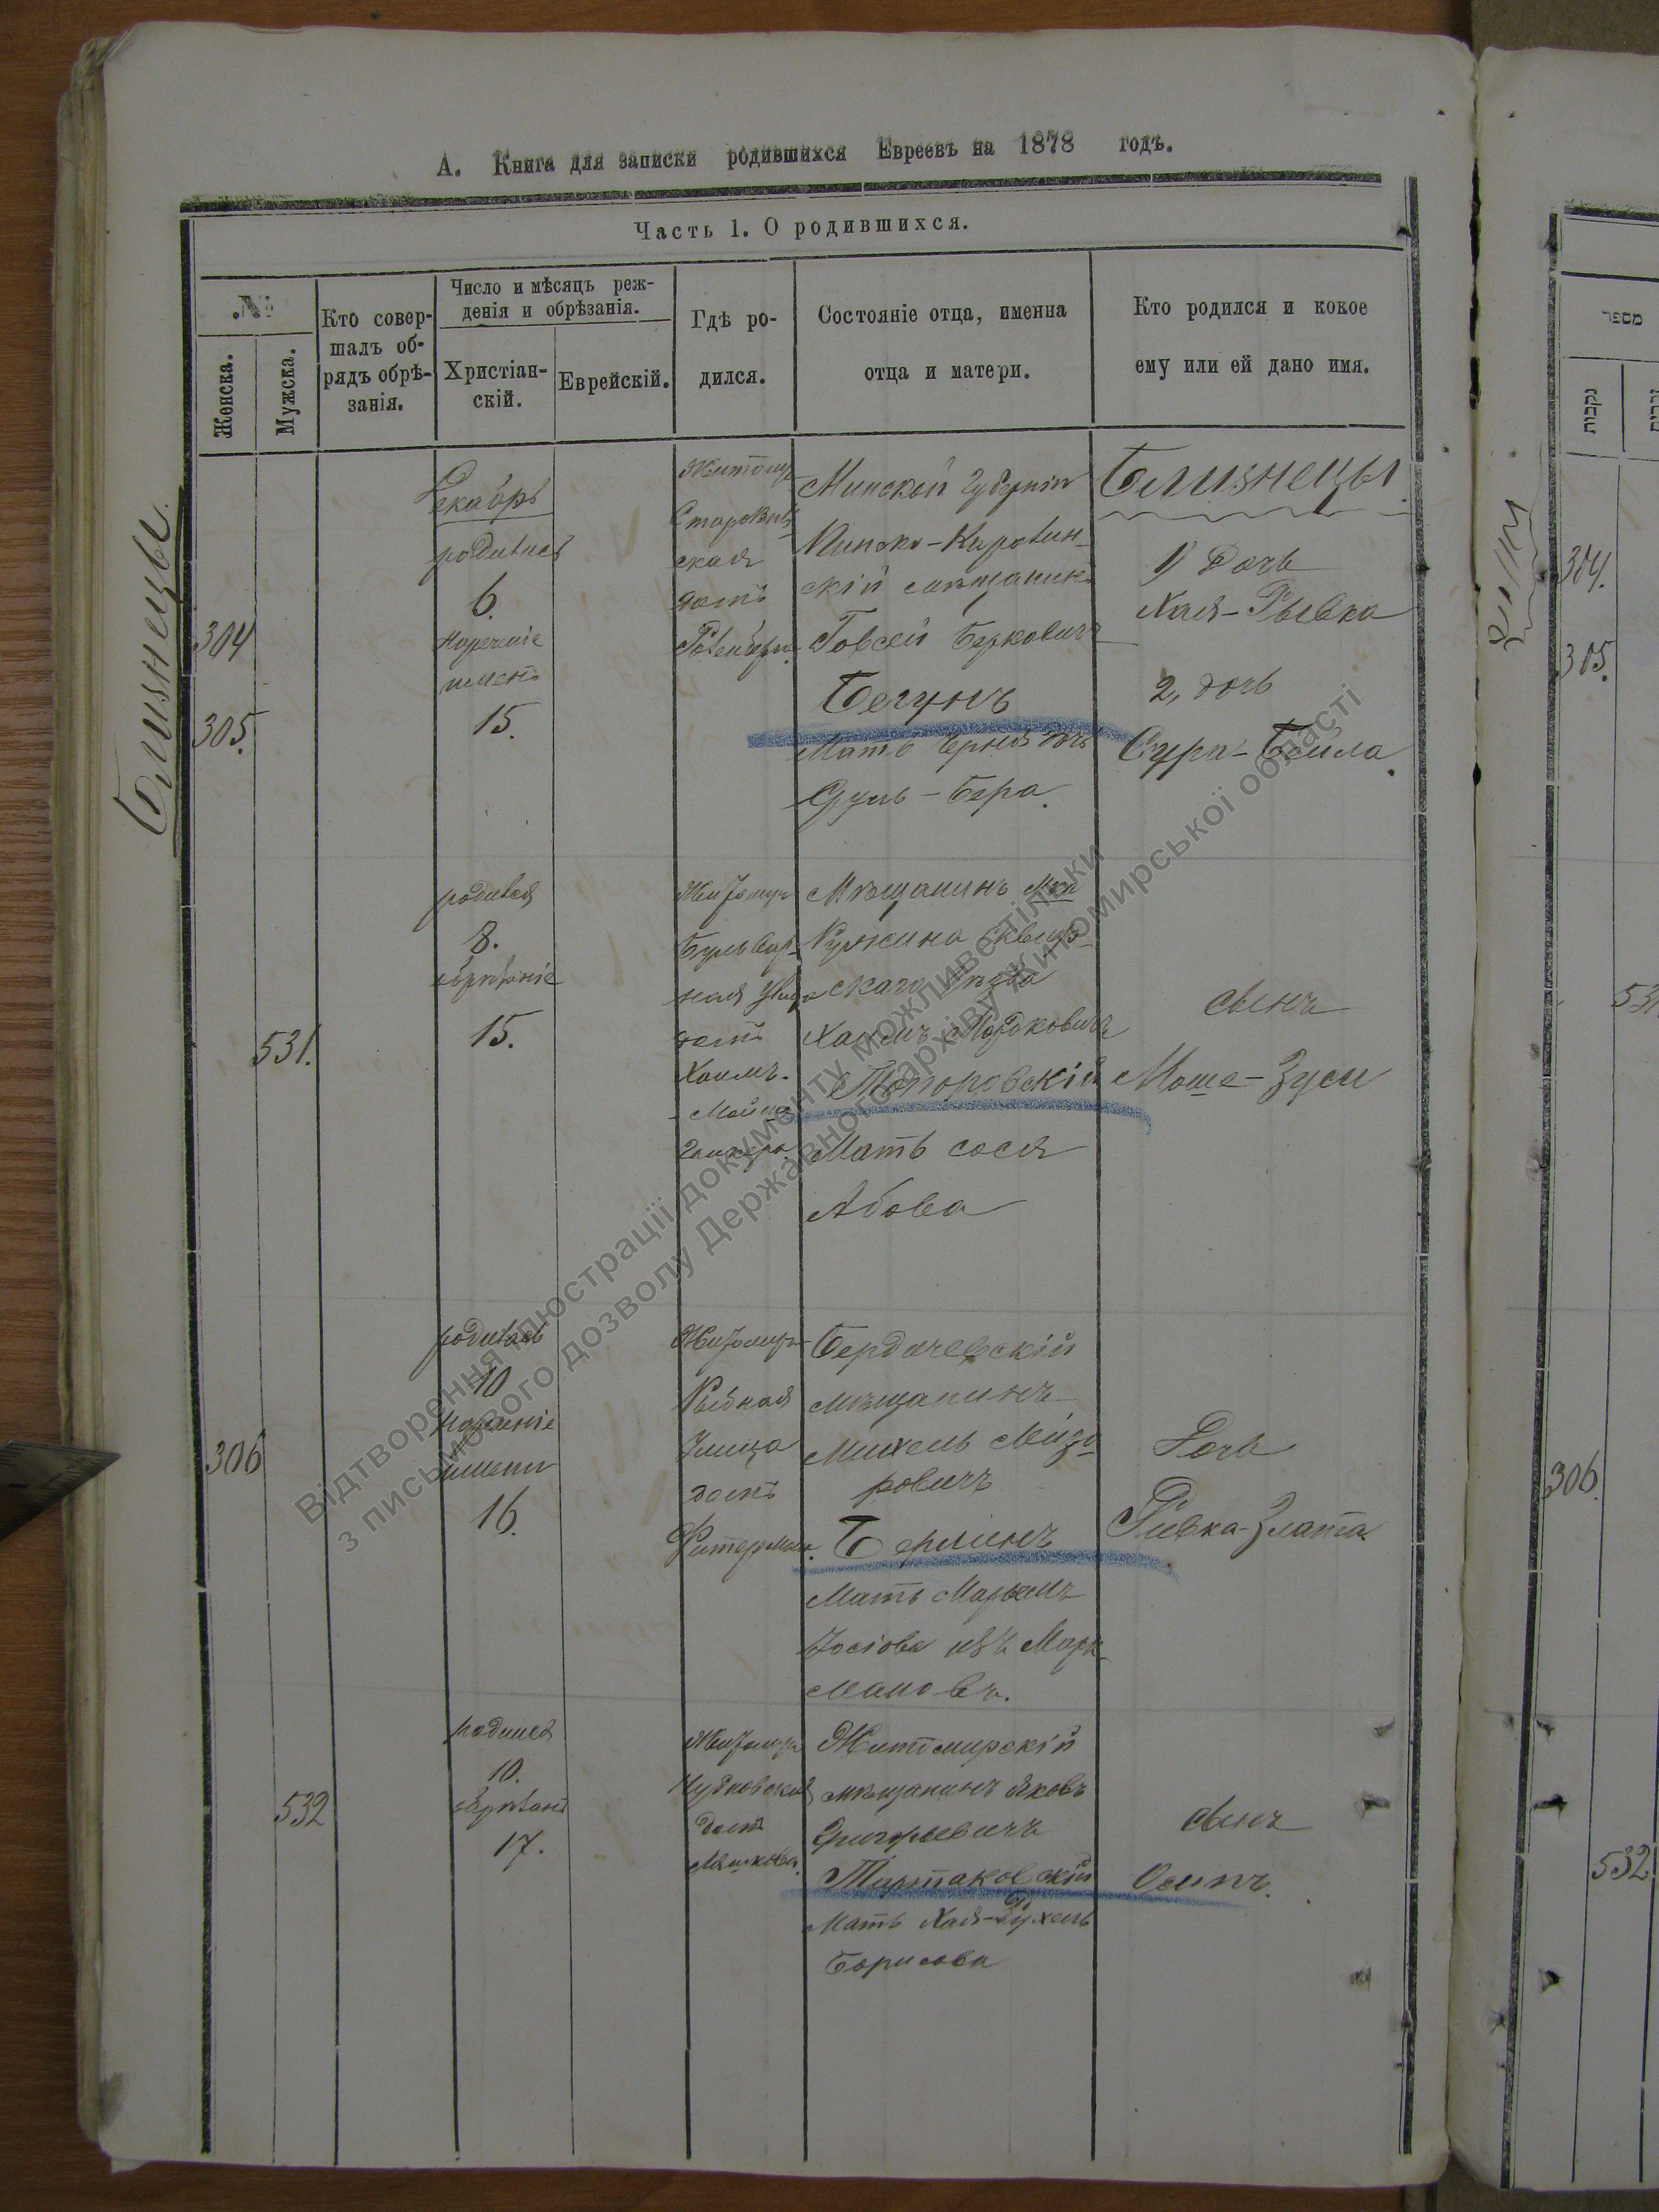 А. Книга для записки родившихся Евреевъ на 1878 годъ.
Часть 1. О родившихся.
№
Женска.
Мужска.
Кто совер-
шалъ об-
рядъ обрѣ-
занія.
Число и мѣсяцъ реж-
денія и обрѣзанія.
Христіан-
скій.
Еврейскій.
Гдѣ ро-
дился.
Состояніе отца, именна
отца и матери.
Кто родился и кокое
ему или ей дано имя.
Близнецы.
304
305.
Декабрь
родились
6.
Нареченіе
именъ
15.
Житомир
ская
домъ
Минской Губерніи
Пинско-Каролин-
скій мѣщанинъ
Говсей Беркович
Бегунъ
Мать Черня дочь
Сруль-Бера.
Близнецы
1) Дочь
Хая-Рывка
2, дочь
Сура-Бейла.
531.
родился
8.
обрѣзаніе
15.
Житомир
Бульвар-
ная улица
домъ
Хаимъ-
Мѣщанинъ м-ка
Ружина Сквир-
скаго уѣзда
Хаимъ Мордковичъ
Топоровскій
Мать Сося
Абова
сынъ
Моше-Зуси
306
родилась
10
Нареченіе
имени
16.
Житомиръ
Рыбная
Улица
домъ
Фитермана.
Бердичевскій
мѣщанинъ
Михель Лейзо
ровичъ
Берлинъ
Мать Марьемъ
Іосіова изъ Марк-
мановъ.
Дочь
Ривка-Злата.
532
родился
10.
обрѣзаніе
17.
Житомиръ
Чудновская
домъ
Житомирскій
мѣщанинъ Яковъ
Григорьевичъ
Тиртаковскій
Мать Хая-Рухель
Борисова
сынъ
Осипъ.
Відтворення ілюстрації документу можливе тільки
з письмового дозволу Державного архіву Житомирської області
מספר
נקבות
304.
305.
531
306.
532